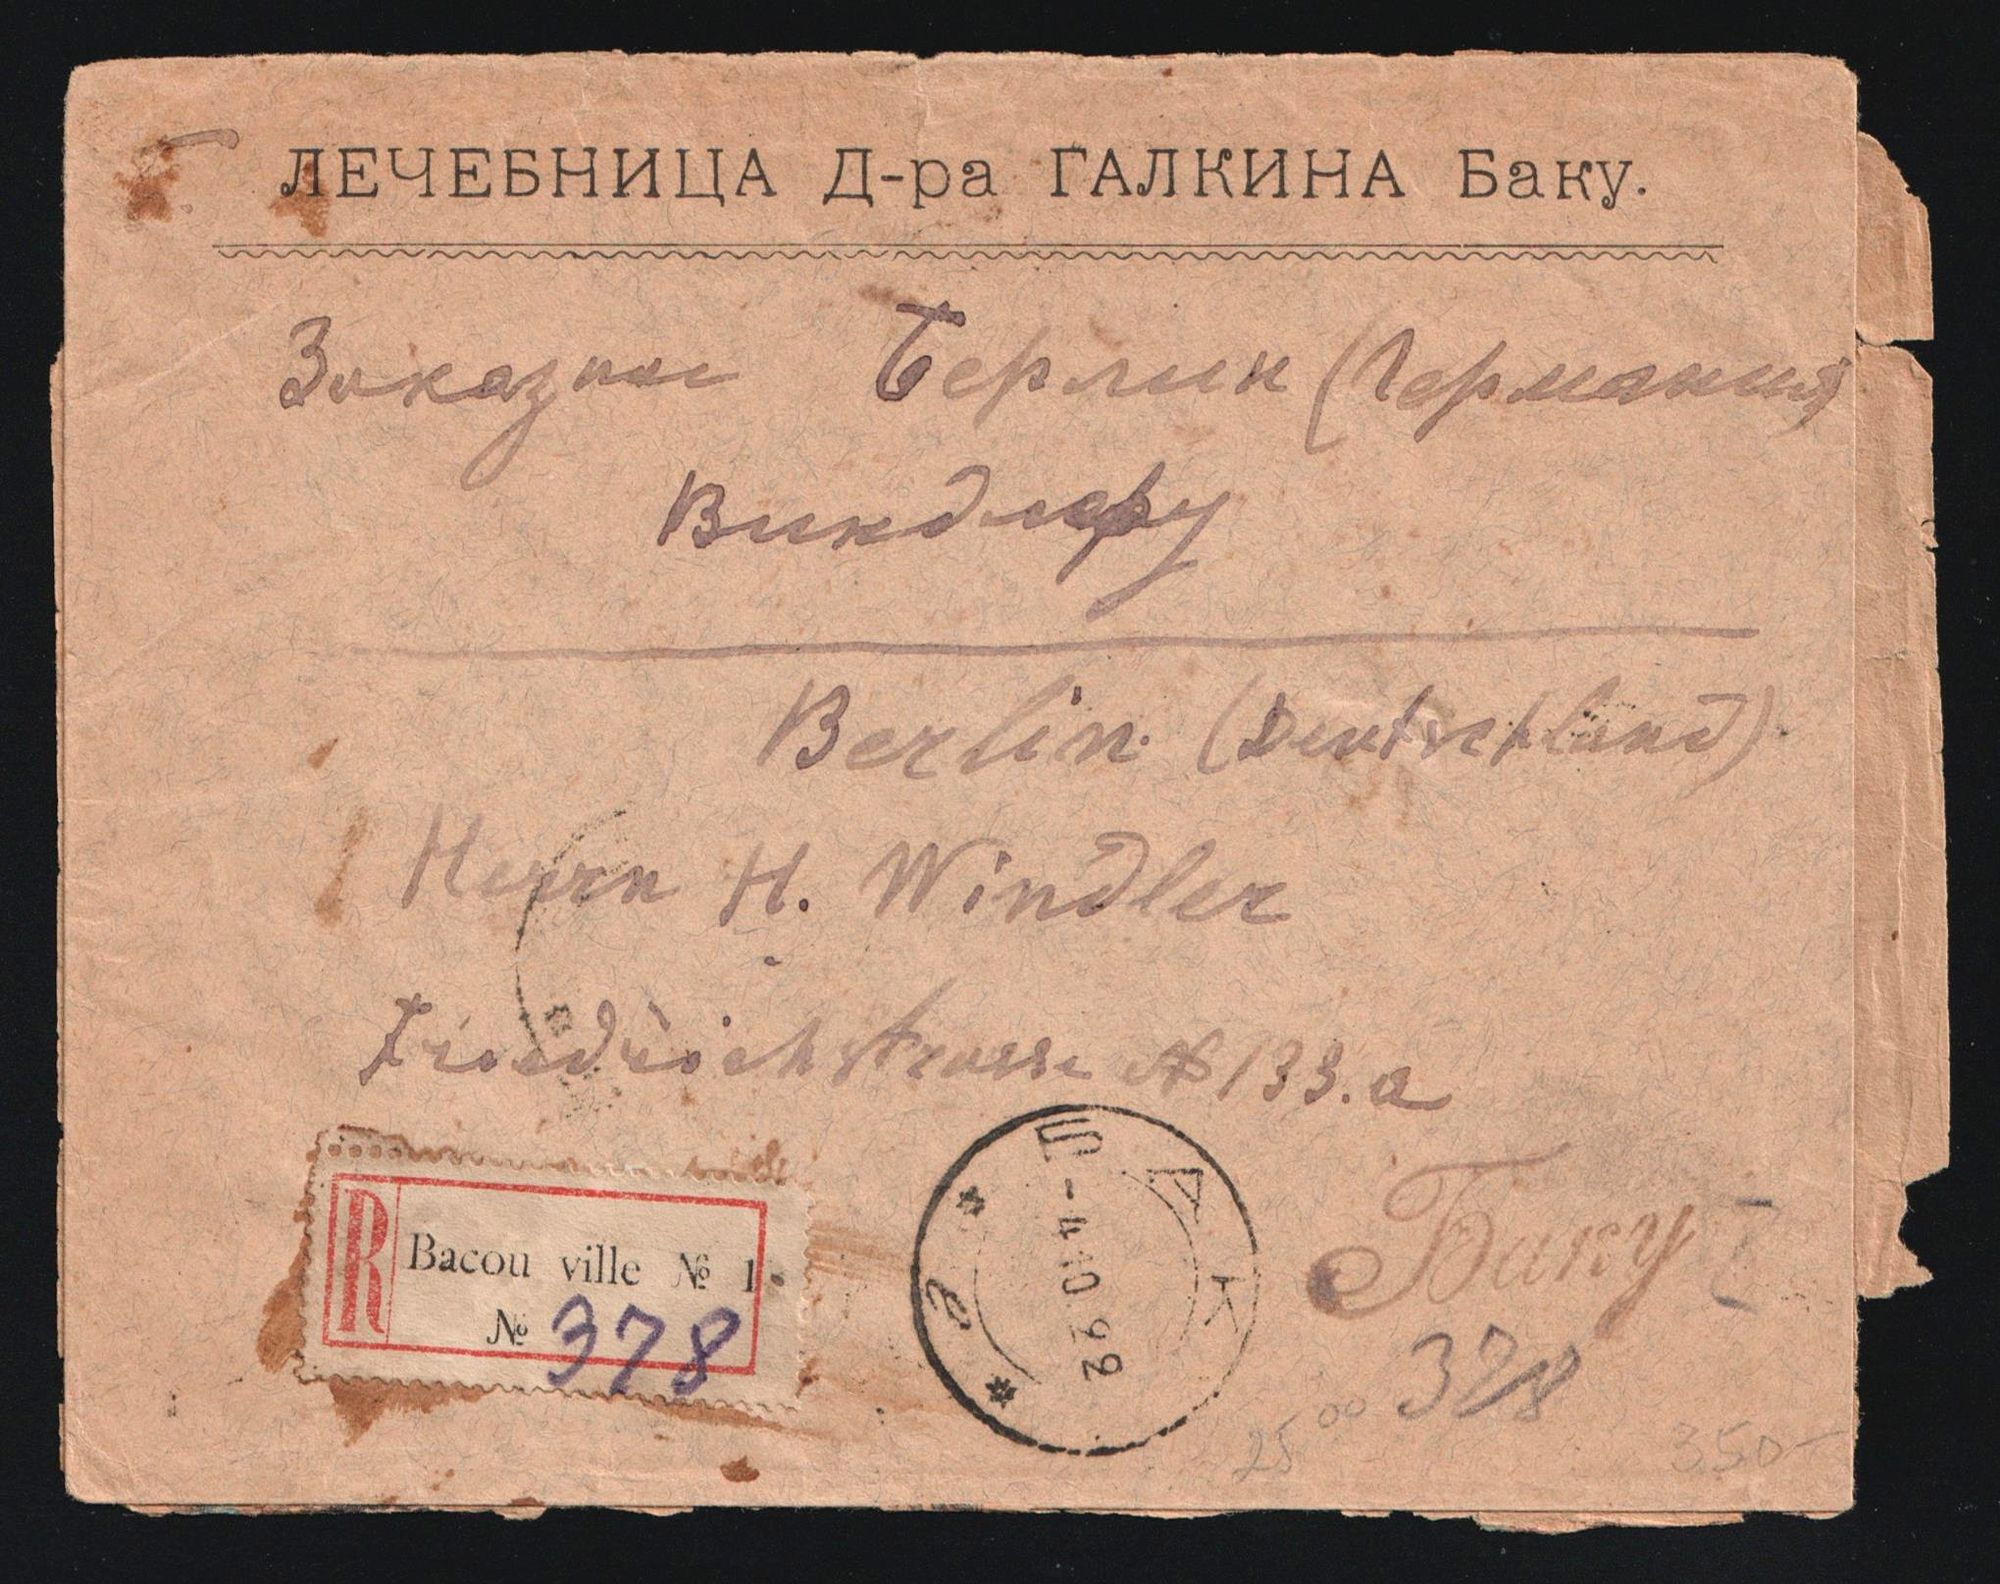 ЛЕЧЕБНИЦА Д-ра ГАЛКИНА Баку.
Заказное Берлин (Германия)
Виндлеру
Berlin. (Deutschland)
Herrn H. Windler
Friedrichstrasse № 133.a
R Bacou ville № 1.
№ 378
БАКУ
29 10 - 4
* *
Баку
378
25 00
350-